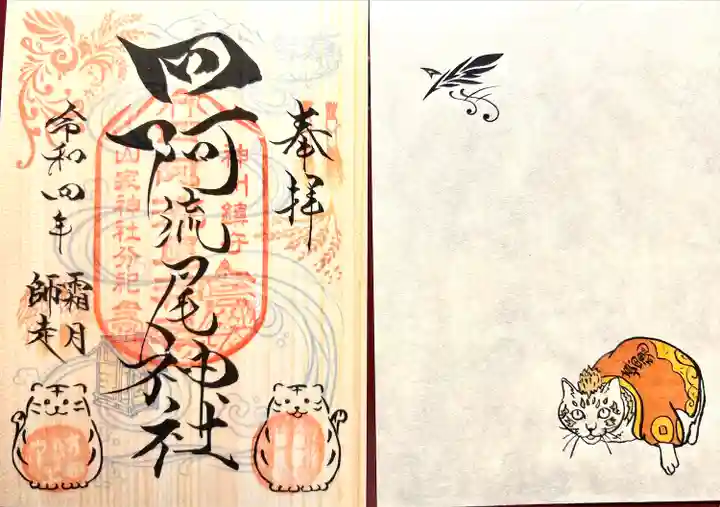 奉拝
四阿流尾神社
神州鎮守
山家神社分祀
令和四年
霜月
師走